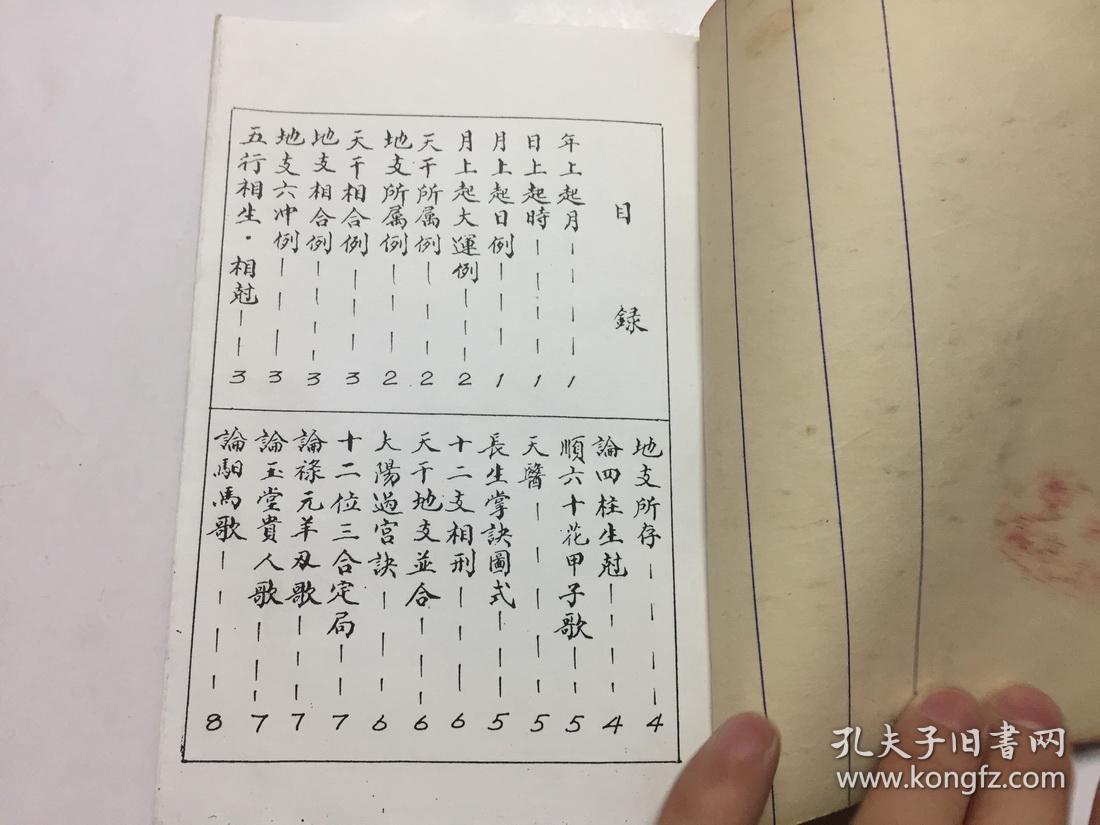 目録
年上起月 1
日上起時 1
月上起日例 1
月上起大運例 2
天干所属例 2
地支所属例 2
天干相合例 3
地支相合例 3
地支六冲例 3
五行相生·相尅 3
地支所存 4
論四柱生尅 4
順六十花甲子歌 5
天醫 5
長生掌訣圖式 5
十二支相刑 6
天干地支並合 6
太陽過宮訣 6
十二位三合定局 7
論祿元羊刄歌 7
論玉堂貴人歌 7
論馹馬歌 8
孔夫子旧書网
www.kongfz.com